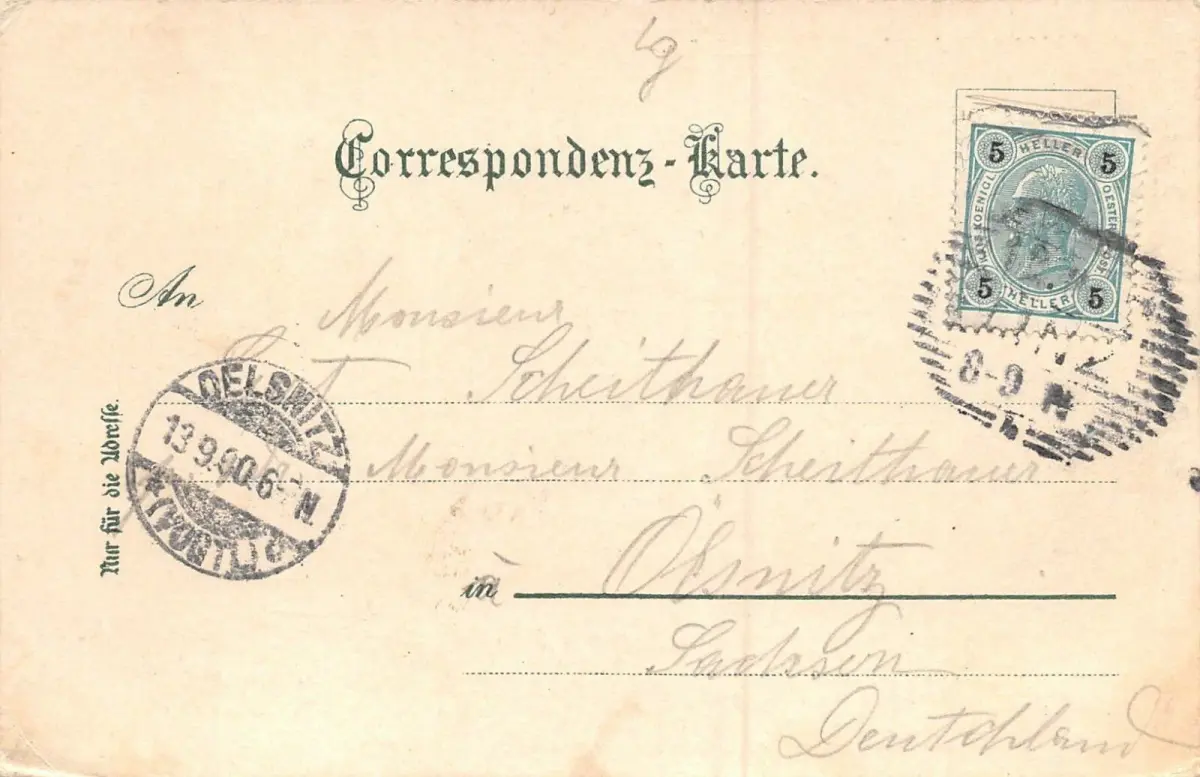 Correspondenz-Karte.
5 HELLER 5
KAIS. KOENIGL. OESTERR. POST
5 HELLER 5
12
8-9 N
An Monsieur
Scheithauer
Monsieur Scheithauer
in à Ölsnitz
Sachsen
Deutchland
Nur für die Adresse.
OELSNITZ
13.9.00.6-7N.
* (VOGTL.)